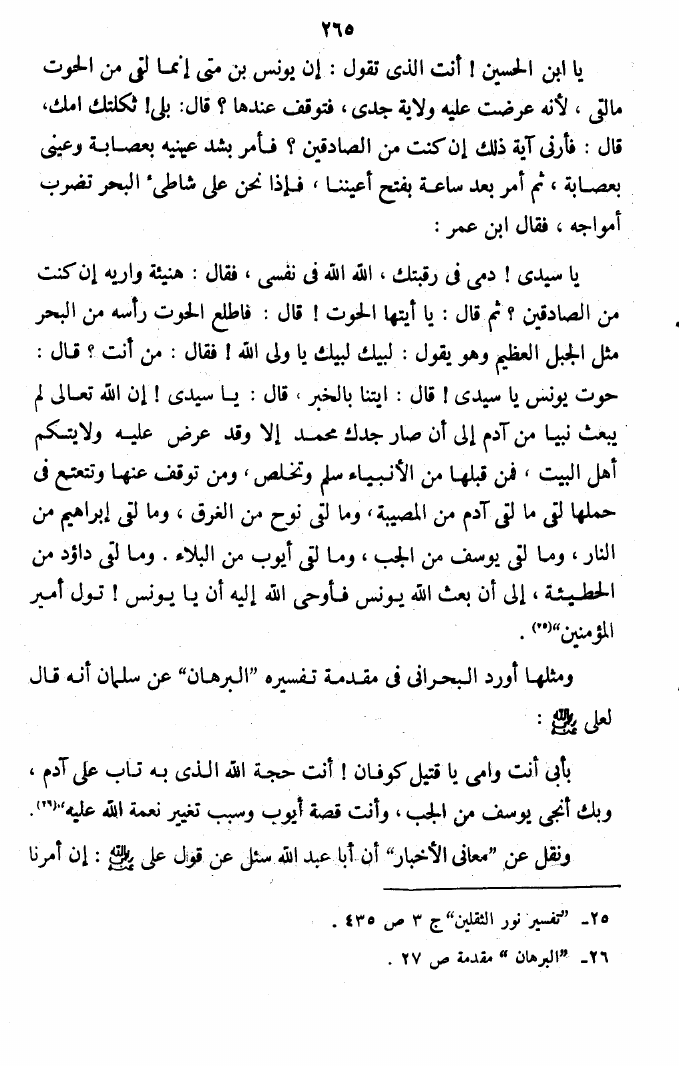 ٢٦٥
يا ابن الحسين ! أنت الذى تقول : إن يونس بن متى إنما لقى من الحوت
مالقى ، لأنه عرضت عليه ولاية جدى ، فتوقف عندها ؟ قال: بلى! ثكلتك امك،
قال : فأرنى آية ذلك إن كنت من الصادقين ؟ فأمر بشد عينيه بعصابة وعينى
بعصابة ، ثم أمر بعد ساعة بفتح أعيننا ، فإذا نحن على شاطىء البحر تضرب
أمواجه ، فقال ابن عمر :
يا سيدى ! دمى فى رقبتك ، الله الله فى نفسى ، فقال : هنيئة واريه إن كنت
من الصادقين ؟ ثم قال : يا أيتها الحوت ! قال : فاطلع الحوت رأسه من البحر
مثل الجبل العظيم وهو يقول : لبيك لبيك يا ولى الله ! فقال : من أنت ؟ قال :
حوت يونس يا سيدى ! قال : ايتنا بالخبر ، قال : يا سيدى ! إن الله تعالى لم
يبعث نبيا من آدم إلى أن صار جدك محمد إلا وقد عرض عليه ولايتكم
أهل البيت ، فمن قبلها من الأنبياء سلم وتخلص ، ومن توقف عنها وتتعتع فى
حملها لقى ما لقى آدم من المصيبة، وما لقى نوح من الغرق ، وما لقى إبراهيم من
النار ، وما لقى يوسف من الجب ، وما لقى أيوب من البلاء . وما لقى داؤد من
الخطيئة ، إلى أن بعث الله يونس فأوحى الله إليه أن يا يونس ! تول أمير
المؤمنين“(٢٥) .
ومثلها أورد البحرانى فى مقدمة تفسيره ”البرهان“ عن سلمان أنه قال
لعلى رضي الله عنه :
بأبى أنت وامى يا قتيل كوفان ! أنت حجة الله الذى به تاب على آدم ،
وبك أنجى يوسف من الجب ، وأنت قصة أيوب وسبب تغيير نعمة الله عليه“(٢٦).
ونقل عن ”معانى الأخبار“ أن أبا عبد الله سئل عن قول على رضي الله عنه : إن أمرنا
٢٥ـ ”تفسير نور الثقلين“ ج ٣ ص ٤٣٥ .
٢٦ـ ”البرهان“ مقدمة ص ٢٧ .